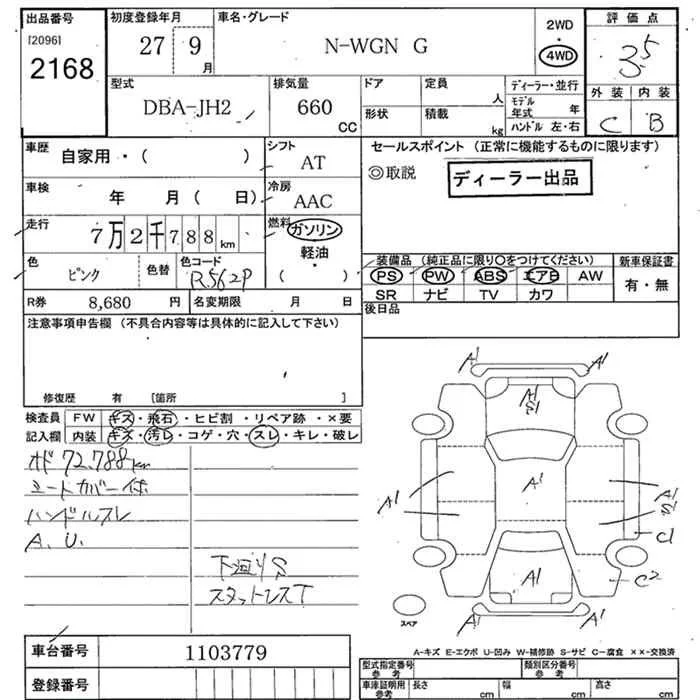 出品番号 初度登録年月 車名・グレード 評価点
[2096] 27 9月 N-WGN G 2WD・4WD 3.5
2168
型式 排気量 ドア 定員 人 ディーラー・並行 外装 内装
DBA-JH2 660CC 形状 積載 kg モデル年式 年 C B
ハンドル 左・右
車歴 自家用・( ) シフト AT セールスポイント (正常に機能するものに限ります)
◎取説 ディーラー出品
車検 年 月( 日) 冷房 AAC
走行 7万2千788km 燃料 ガソリン
軽油・( )
色 ピンク 色替 色コード R562P
装備品 (純正品に限り○をつけてください) 新車保証書
PS PW ABS エアB AW 有・無
SR ナビ TV カワ
R券 8,680円 名変期限 月 日 後日品
注意事項申告欄 (不具合内容等は具体的に記入して下さい)
修復歴 有 [箇所 ]
検査員 FW キズ・飛石・ヒビ割・リペア跡・×要
記入欄 内装 キズ・汚レ・コゲ・穴・スレ・キレ・破レ
オド 72,788km
シートカバー付
ハンドルスレ
A、U、
下廻りS
スタットレスT
A1 A1
A1
S1
A1
A1
A1
S1
A1
C1
A1
C2
A1 A1
スペア
車台番号 1103779
登録番号
A-キズ E-エクボ U-凹み W-補修跡 S-サビ C-腐食 ××-交換済
型式指定番号 参考 類別区分番号 参考
車庫証明用 参考 長さ cm 幅 cm 高さ cm